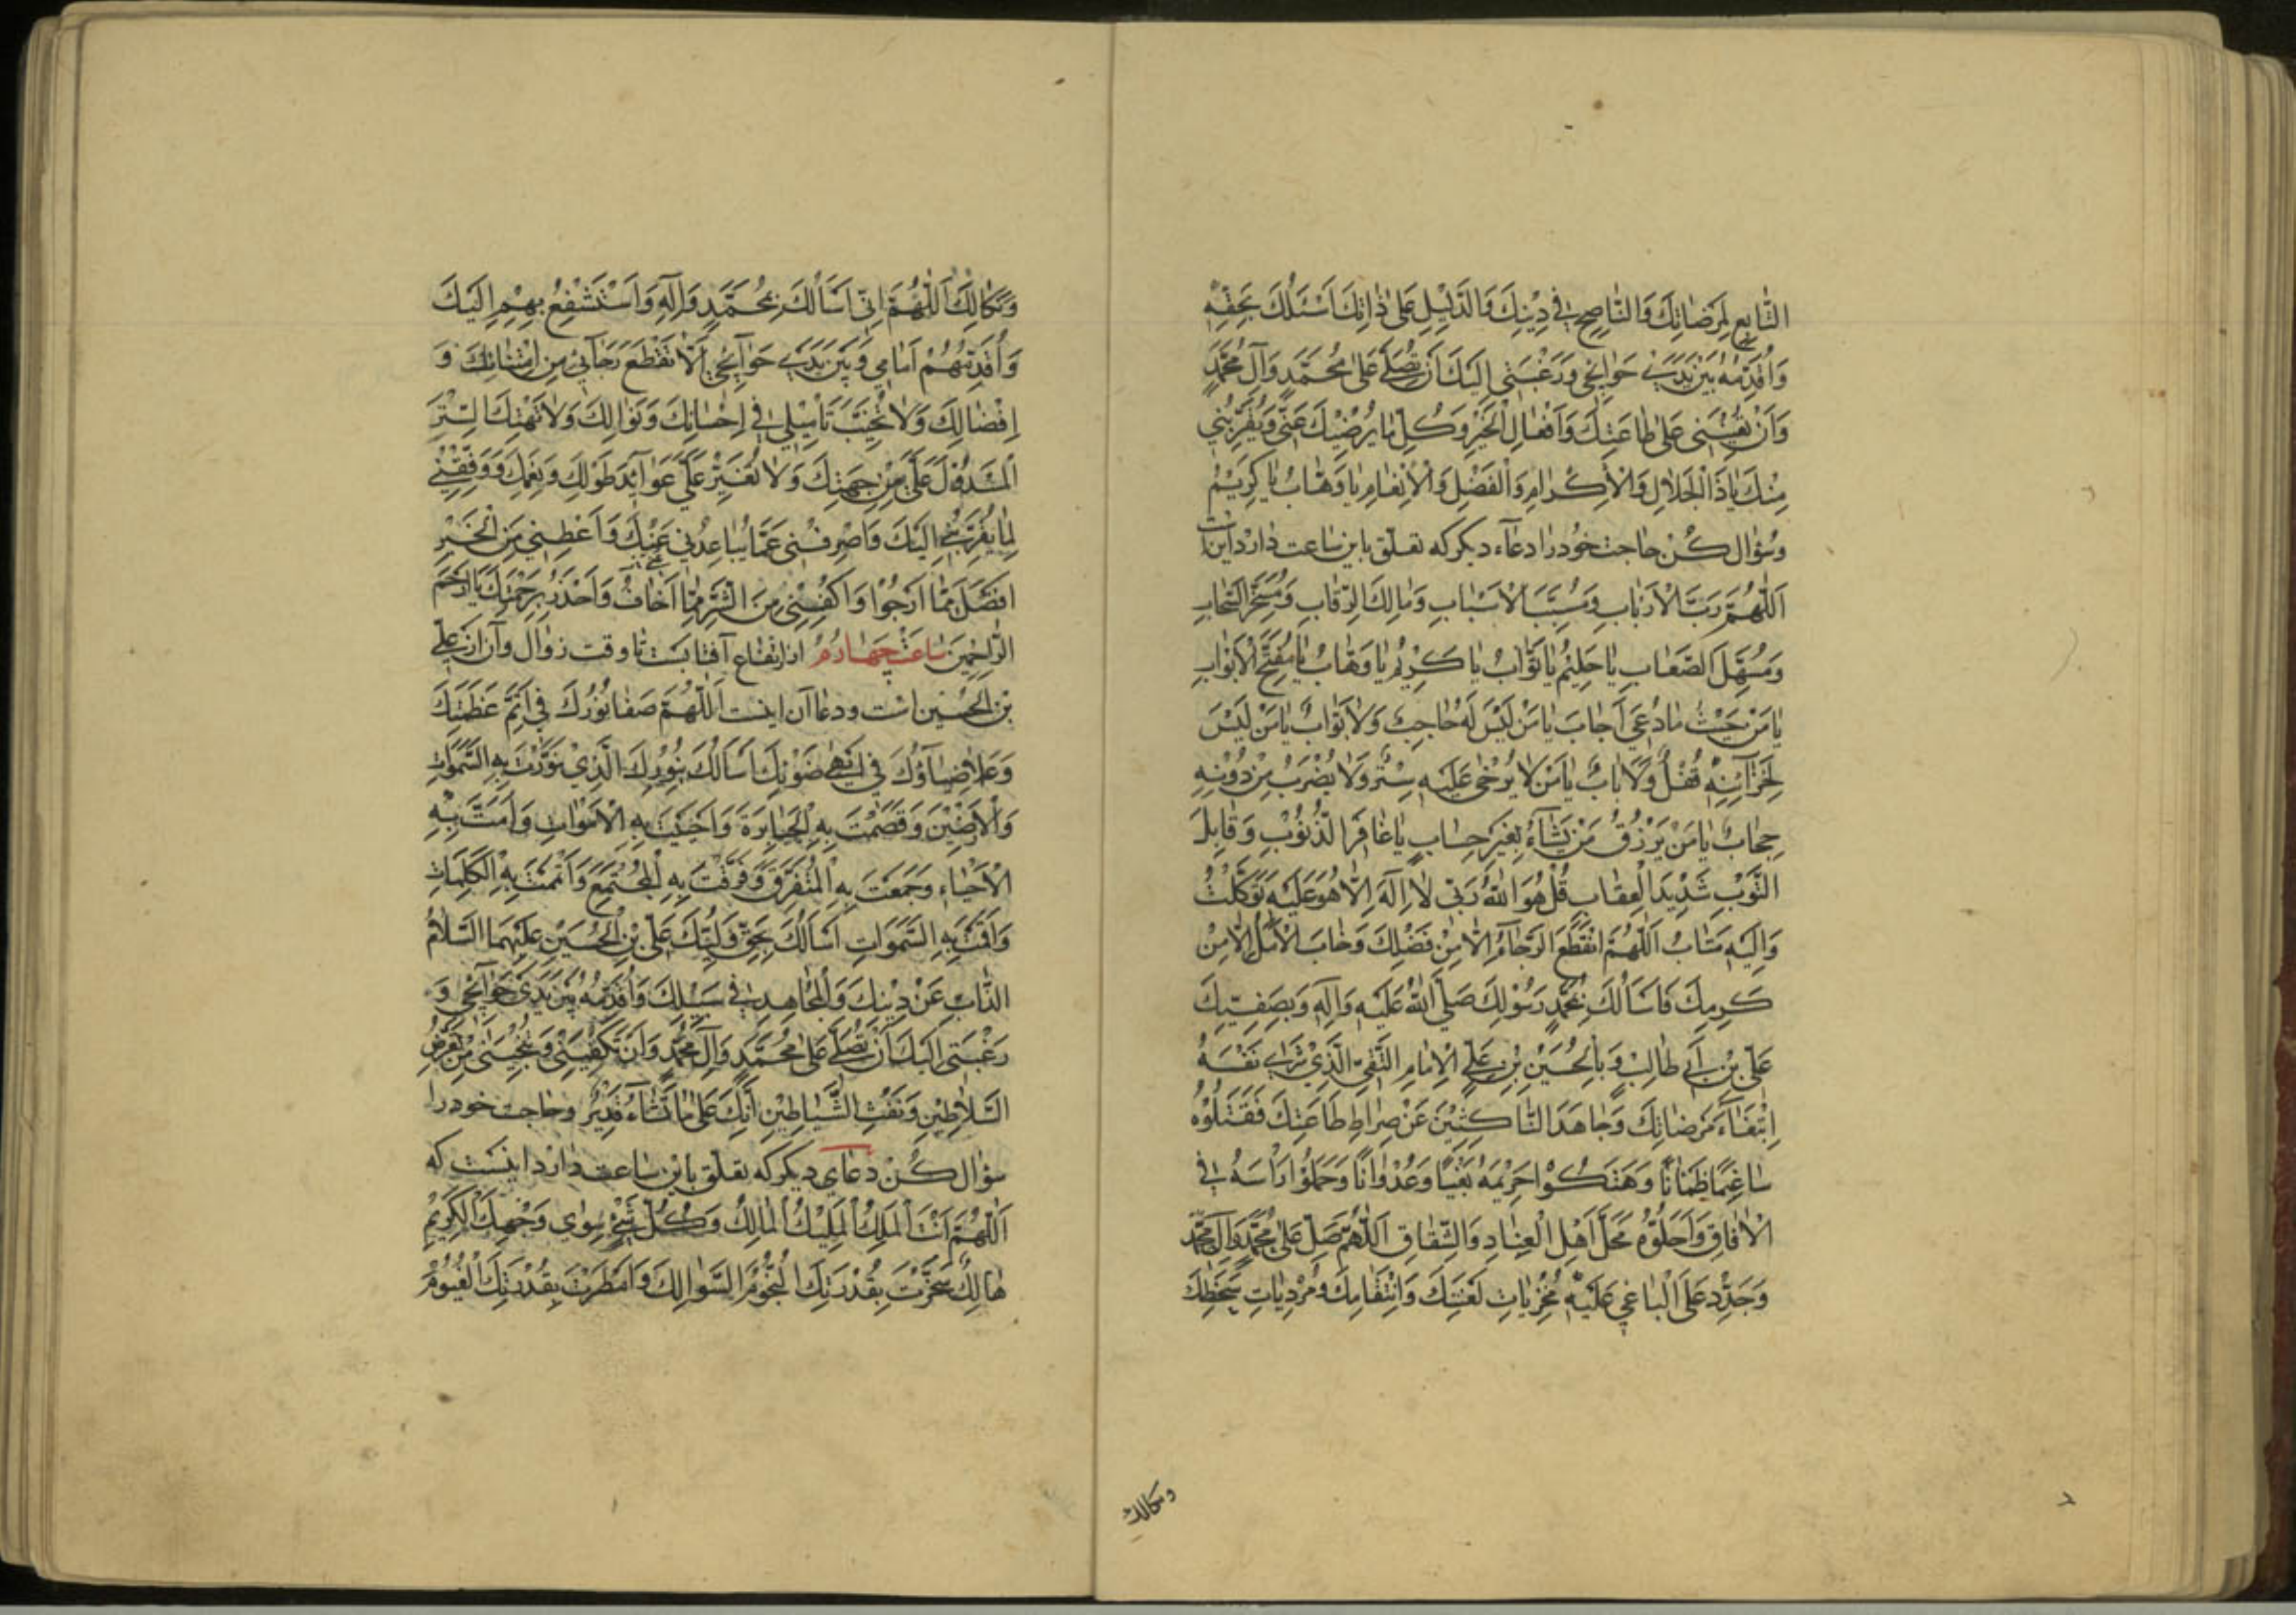 التَّابِعِ لِمَرَضَاتِكَ وَالنَّاصِحِ فِي دِيْنِكَ وَالدَّلِيْلِ عَلَى ذَاتِكَ اَسْئَلُكَ بِحَقِّهِ
وَاُقَدِّمُهُ بَيْنَ يَدَيْ حَوَائِجِي وَرَغْبَتِي اِلَيْكَ اَنْ تُصَلِّيَ عَلَى مُحَمَّدٍ وَآلِ مُحَمَّدٍ
وَاَنْ تُعِيْنَنِي عَلَى طَاعَتِكَ وَاَفْعَالِ الْخَيْرِ وَكُلِّ مَا يُرْضِيْكَ عَنِّي وَيُقَرِّبُنِي
مِنْكَ يَا ذَا الْجَلَالِ وَالْاِكْرَامِ وَالْفَضْلِ وَالْاِنْعَامِ يَا وَهَّابُ يَا كَرِيْمُ
وسُؤال كُن حاجت خود را دعاء ديكر كه تعلّق باين ساعت دارد اين است
اَللّٰهُمَّ رَبَّ الْاَرْبَابِ وَمُسَبِّبَ الْاَسْبَابِ وَمَالِكَ الرِّقَابِ وَمُسَخِّرَ السَّحَابِ
وَمُسَهِّلَ الصِّعَابِ يَا حَلِيْمُ يَا تَوَّابُ يَا كَرِيْمُ يَا وَهَّابُ يَا مُفَتِّحَ الْاَبْوَابِ
يَا مَنْ حَيْثُ مَا دُعِيَ اَجَابَ يَا مَنْ لَيْسَ لَهُ حَاجِبٌ وَلَا بَوَّابٌ يَا مَنْ لَيْسَ
لِخَزَآئِنِهِ قُفْلٌ وَلَا بَابٌ يَا مَنْ لَا يُرْخٰى عَلَيْهِ سِتْرٌ وَلَا يُضْرَبُ مِنْ دُوْنِهِ
حِجَابٌ يَا مَنْ يَرْزُقُ مَنْ يَشَآءُ بِغَيْرِ حِسَابٍ يَا غَافِرَ الذُّنُوْبِ وَقَابِلَ
التَّوْبِ شَدِيْدَ الْعِقَابِ قُلْ هُوَ اللّٰهُ رَبِّي لَا اِلٰهَ اِلَّا هُوَ عَلَيْهِ تَوَكَّلْتُ
وَاِلَيْهِ مَتَابُ اَللّٰهُمَّ انْقَطَعَ الرَّجَآءُ اِلَّا مِنْ فَضْلِكَ وَخَابَ الْاَمَلُ اِلَّا مِنْ
كَرَمِكَ فَاَسْاَلُكَ بِمُحَمَّدٍ رَسُوْلِكَ صَلَّى اللّٰهُ عَلَيْهِ وَآلِهِ وَبِصَفِيِّكَ
عَلِيِّ بْنِ اَبِي طَالِبٍ وَبِالْحُسَيْنِ بْنِ عَلِيٍّ الْاِمَامِ التَّقِيِّ الَّذِيْ شَرٰى نَفْسَهُ
اِبْتِغَآءَ مَرْضَاتِكَ وَجَاهَدَ النَّاكِثِيْنَ عَنْ صِرَاطِ طَاعَتِكَ فَقَتَلُوْهُ
سَاغِبًا ظَمْاٰنًا وَهَتَكُوْا حَرِيْمَهُ بَغْيًا وَعُدْوَانًا وَحَمَلُوْا رَاْسَهُ فِي
الْاٰفَاقِ وَاَحَلُّوْهُ مَحَلَّ اَهْلِ الْعِنَادِ وَالشِّقَاقِ اَللّٰهُمَّ صَلِّ عَلَى مُحَمَّدٍ وَآلِ مُحَمَّدٍ
وَجَدِّدْ عَلَى الْبَاغِي عَلَيْهِ مُخْزِيَاتِ لَعْنَتِكَ وَانْتِقَامِكَ وَمُرْدِيَاتِ سَخَطِكَ
ونكالك
وَنَكَالِكَ اَللّٰهُمَّ اِنِّي اَسْاَلُكَ بِمُحَمَّدٍ وَآلِهِ وَاَسْتَشْفِعُ بِهِمْ اِلَيْكَ
وَاُقَدِّمُهُمْ اَمَامِي وَبَيْنَ يَدَيْ حَوَآئِجِي اَلَّا تَقْطَعَ رَجَآئِي مِنِ امْتِنَانِكَ وَ
اِفْضَالِكَ وَلَا تُخَيِّبَ تَاْمِيْلِي فِي اِحْسَانِكَ وَنَوَالِكَ وَلَا تَهْتِكَ السِّتْرَ
الْمَسْدُوْلَ عَلَيَّ مِنْ جِهَتِكَ وَلَا تُغَيِّرْ عَلَيَّ عَوَآئِدَ طَوْلِكَ وَنِعَمِكَ وَوَفِّقْنِي
لِمَا يُقَرِّبُنِي اِلَيْكَ وَاصْرِفْنِي عَمَّا يُبَاعِدُنِي عَنْكَ وَاَعْطِنِي مِنَ الْخَيْرِ
اَفْضَلَ مِمَّا اَرْجُوْا وَاكْفِنِي مِنَ الشَّرِّ مِمَّا اَخَافُ وَاَحْذَرُ بِرَحْمَتِكَ يَا اَرْحَمَ
الرَّاحِمِيْنَ ساعت چهارم از ارتفاع آفتابست تا وقت زوال وآن از علي
بن الحُسين است ودعا آن اينست اَللّٰهُمَّ صَفَا نُوْرُكَ فِي اَتَمِّ عَظَمَتِكَ
وَعَلَا ضِيَآؤُكَ فِي اَبْهٰى ضَوْئِكَ اَسْاَلُكَ بِنُوْرِكَ الَّذِي نَوَّرْتَ بِهِ السَّمٰوَاتِ
وَالْاَرَضِيْنَ وَقَصَمْتَ بِهِ الْجَبَابِرَةَ وَاَحْيَيْتَ بِهِ الْاَمْوَاتَ وَاَمَتَّ بِهِ
الْاَحْيَاءَ وَجَمَعْتَ بِهِ الْمُتَفَرِّقَ وَفَرَّقْتَ بِهِ الْمُجْتَمِعَ وَاَتْمَمْتَ بِهِ الْكَلِمَاتِ
وَاَقَمْتَ بِهِ السَّمٰوَاتِ اَسْاَلُكَ بِحَقِّ وَلِيِّكَ عَلِيِّ بْنِ الْحُسَيْنِ عَلَيْهِمَا السَّلَامُ
الذَّابِّ عَنْ دِيْنِكَ وَالْمُجَاهِدِ فِي سَبِيْلِكَ وَاُقَدِّمُهُ بَيْنَ يَدَيْ حَوَآئِجِي وَ
رَغْبَتِي اِلَيْكَ اَنْ تُصَلِّيَ عَلَى مُحَمَّدٍ وَآلِ مُحَمَّدٍ وَاَنْ تَكْفِيَنِي وَتُنْجِيَنِي مِنْ تَعَرُّضِ
السَّلَاطِيْنِ وَنَفْثِ الشَّيَاطِيْنِ اِنَّكَ عَلَى مَا تَشَآءُ قَدِيْرٌ وحاجت خود را
سؤال كُن دعاي ديكر كه تعلّق باين ساعت دارد اينست كه
اَللّٰهُمَّ اَنْتَ الْمَلِكُ الْمَلِيْكُ الْمَالِكُ وَكُلُّ شَيْءٍ سِوٰى وَجْهِكَ الْكَرِيْمِ
هَالِكٌ سَخَّرْتَ بِقُدْرَتِكَ النُّجُوْمَ السَّوَالِكَ وَاَمْطَرْتَ بِقُدْرَتِكَ الْغُيُوْمَ